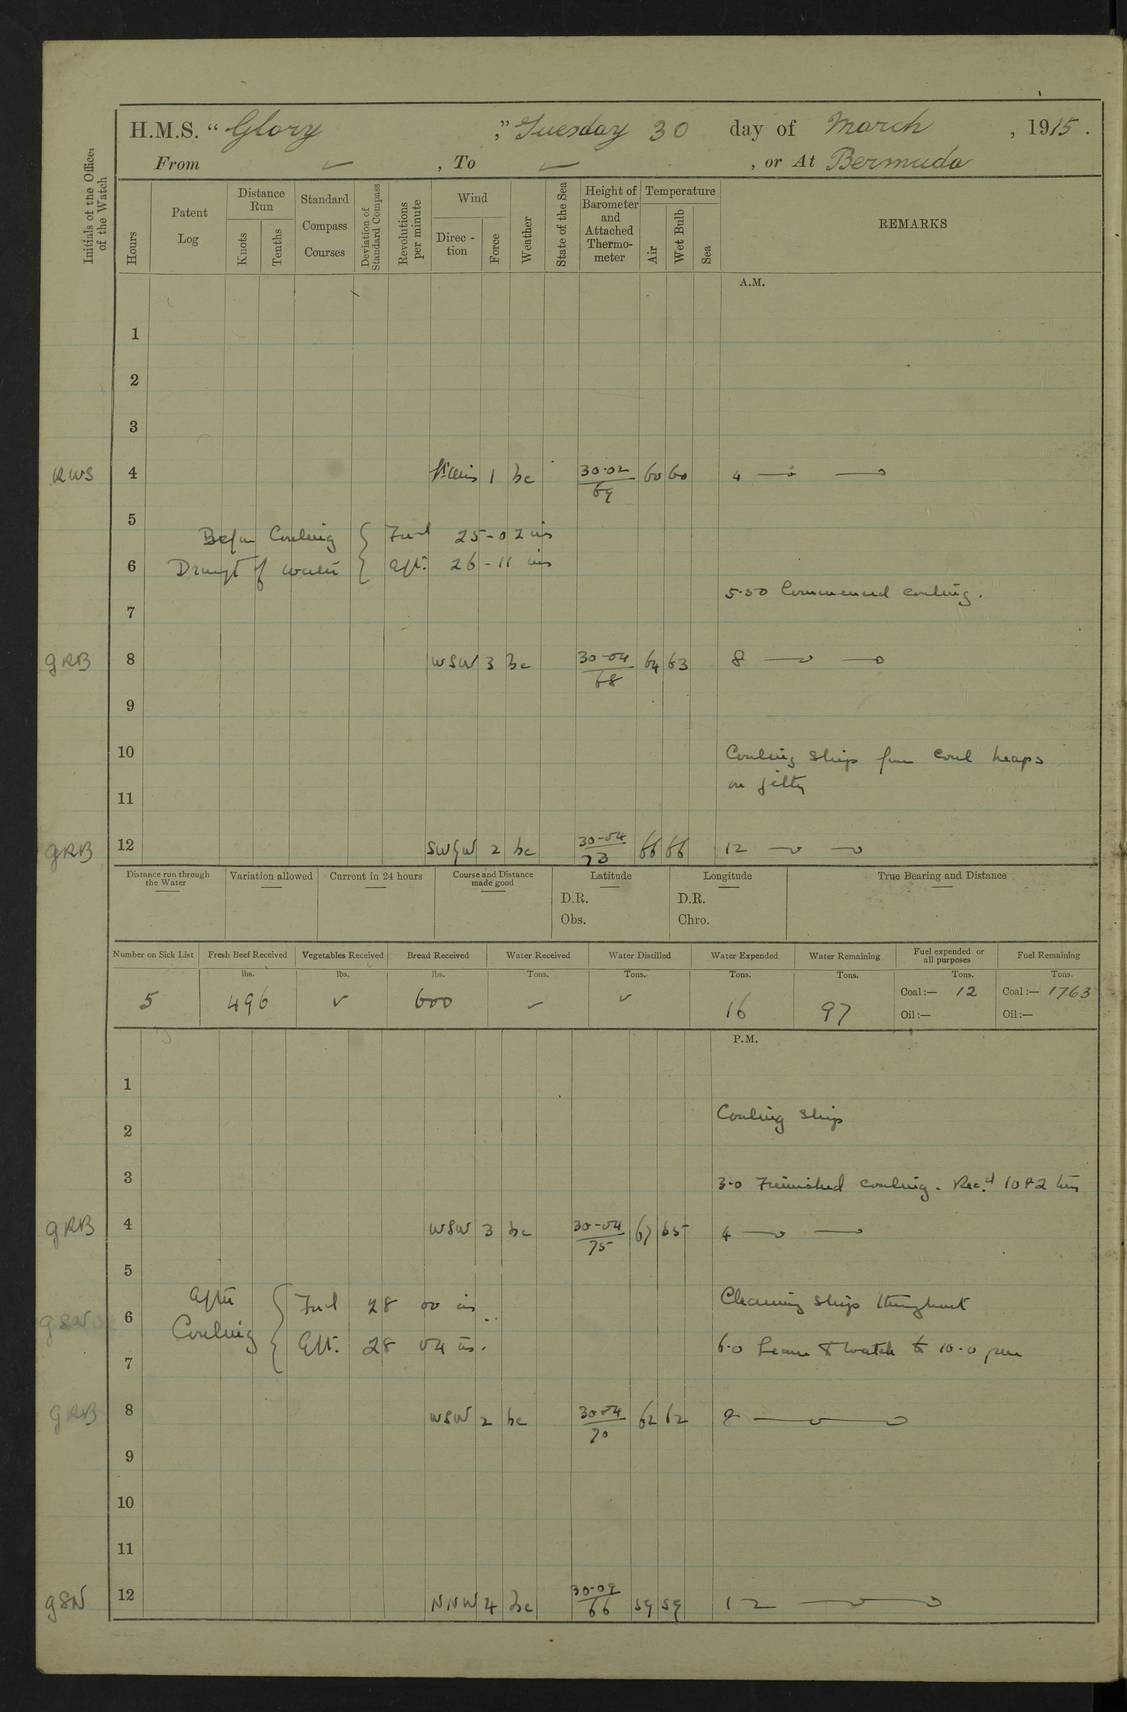 H.M.S. “Glory ,” Tuesday 30 day of March , 1915.
From — , To — , or At Bermuda
Initials of the Officer of the Watch
Hours
Patent Log
Distance Run
Knots
Tenths
Standard Compass Courses
Deviation of Standard Compass
Revolutions per minute
Wind
Direction
Force
Weather
State of the Sea
Height of Barometer and Attached Thermometer
Temperature
Air
Wet Bulb
Sea
REMARKS
A.M.
1
2
3
RWS 4 1 bc 30.02 69 60 60 4
5
Before Coaling Draught of water { Fwd 25-02 ins
6
Aft. 26-11 ins
5.50 Commenced coaling.
7
GRB 8 WSW 3 bc 30-04 68 64 63 8
9
10 Coaling ship from coal heaps
on jetty
11
GRB 12 SWyW 2 bc 30-04 73 66 66 12
Distance run through the Water
Variation allowed
Current in 24 hours
Course and Distance made good
Latitude
D.R.
Obs.
Longitude
D.R.
Chro.
True Bearing and Distance
Number on Sick List
Fresh Beef Received
Vegetables Received
Bread Received
Water Received
Water Distilled
Water Expended
Water Remaining
Fuel expended or all purposes
Fuel Remaining
lbs. lbs. lbs. Tons. Tons. Tons. Tons. Tons. Tons.
5 496 ✓ 600 — ✓ 16 97 Coal:— 12 Coal:— 1763
Oil:— Oil:—
P.M.
1
Coaling ship
2
3 3.0 Finished coaling. Rec.d 1082 tons
GRB 4 WSW 3 bc 30-04 75 67 65 4
5
After Coaling { Fwd 28 00 ins
Cleaning ship throughout
6
Aft. 28 04 ins.
6.0 Leave to watch to 10.0 pm
7
GRB 8 WSW 2 bc 30.04 70 62 62 8
9
10
11
GSN 12 NNW 4 bc 30.09 66 59 59 12